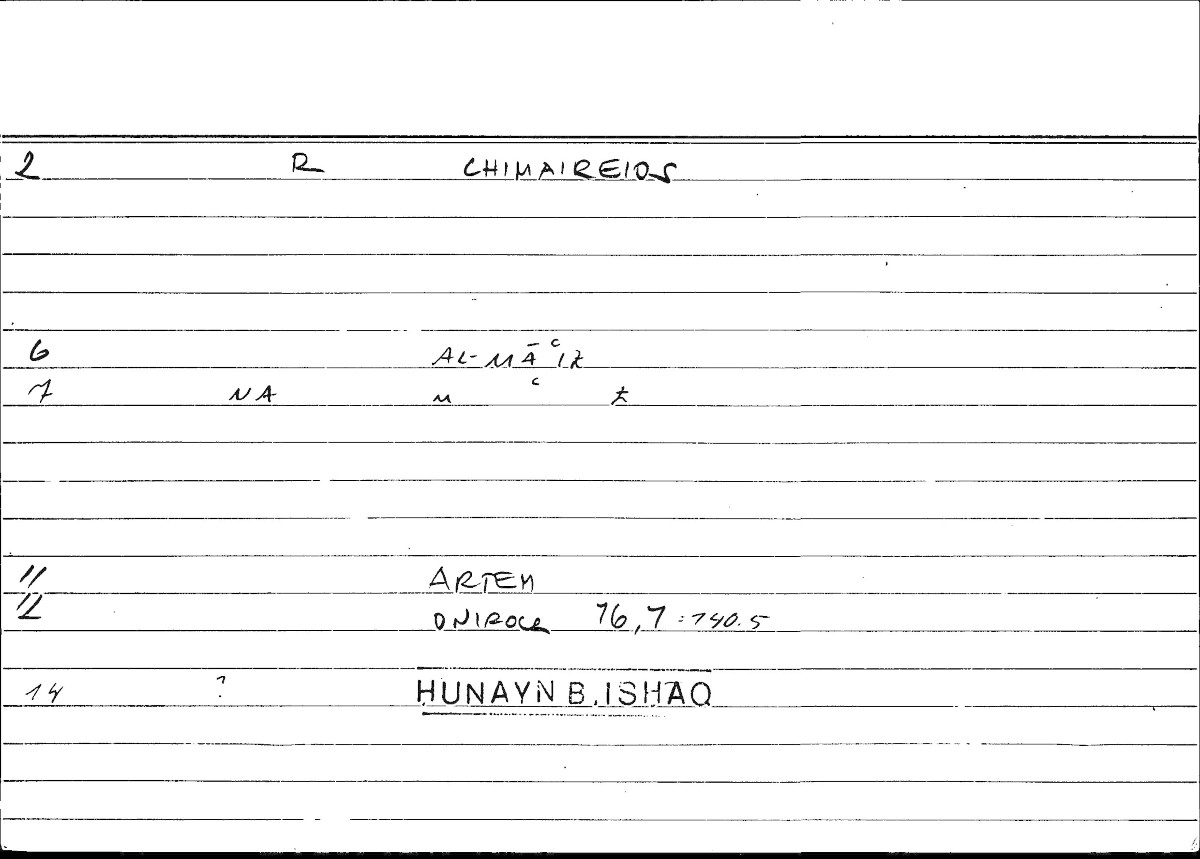 2 R CHIMAIREIOS
6 AL-MĀʿIZ
7 NA M ʿ Z
11 ARTEM
12 ONIROCR 76,7 : 140.5
14 ? HUNAYN B. ISHAQ